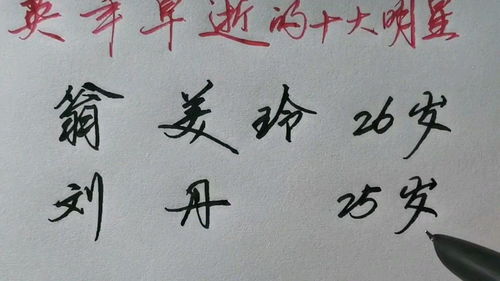 英年早逝的十大明星
翁美玲 26岁
刘丹 25岁